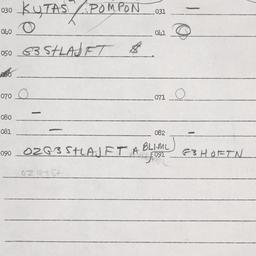 030 KUTAS / POMPON 031 —
040 O 041 O
050 G3StLAJFT
070 O 071 O
080 —
081 — 082 —
090 OZG3StLAJFT A 091 G3HOFTN